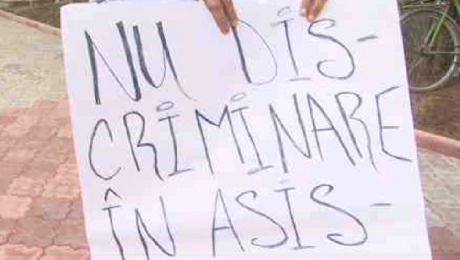 NU DIS-
CRIMINARE
ÎN ASIS-